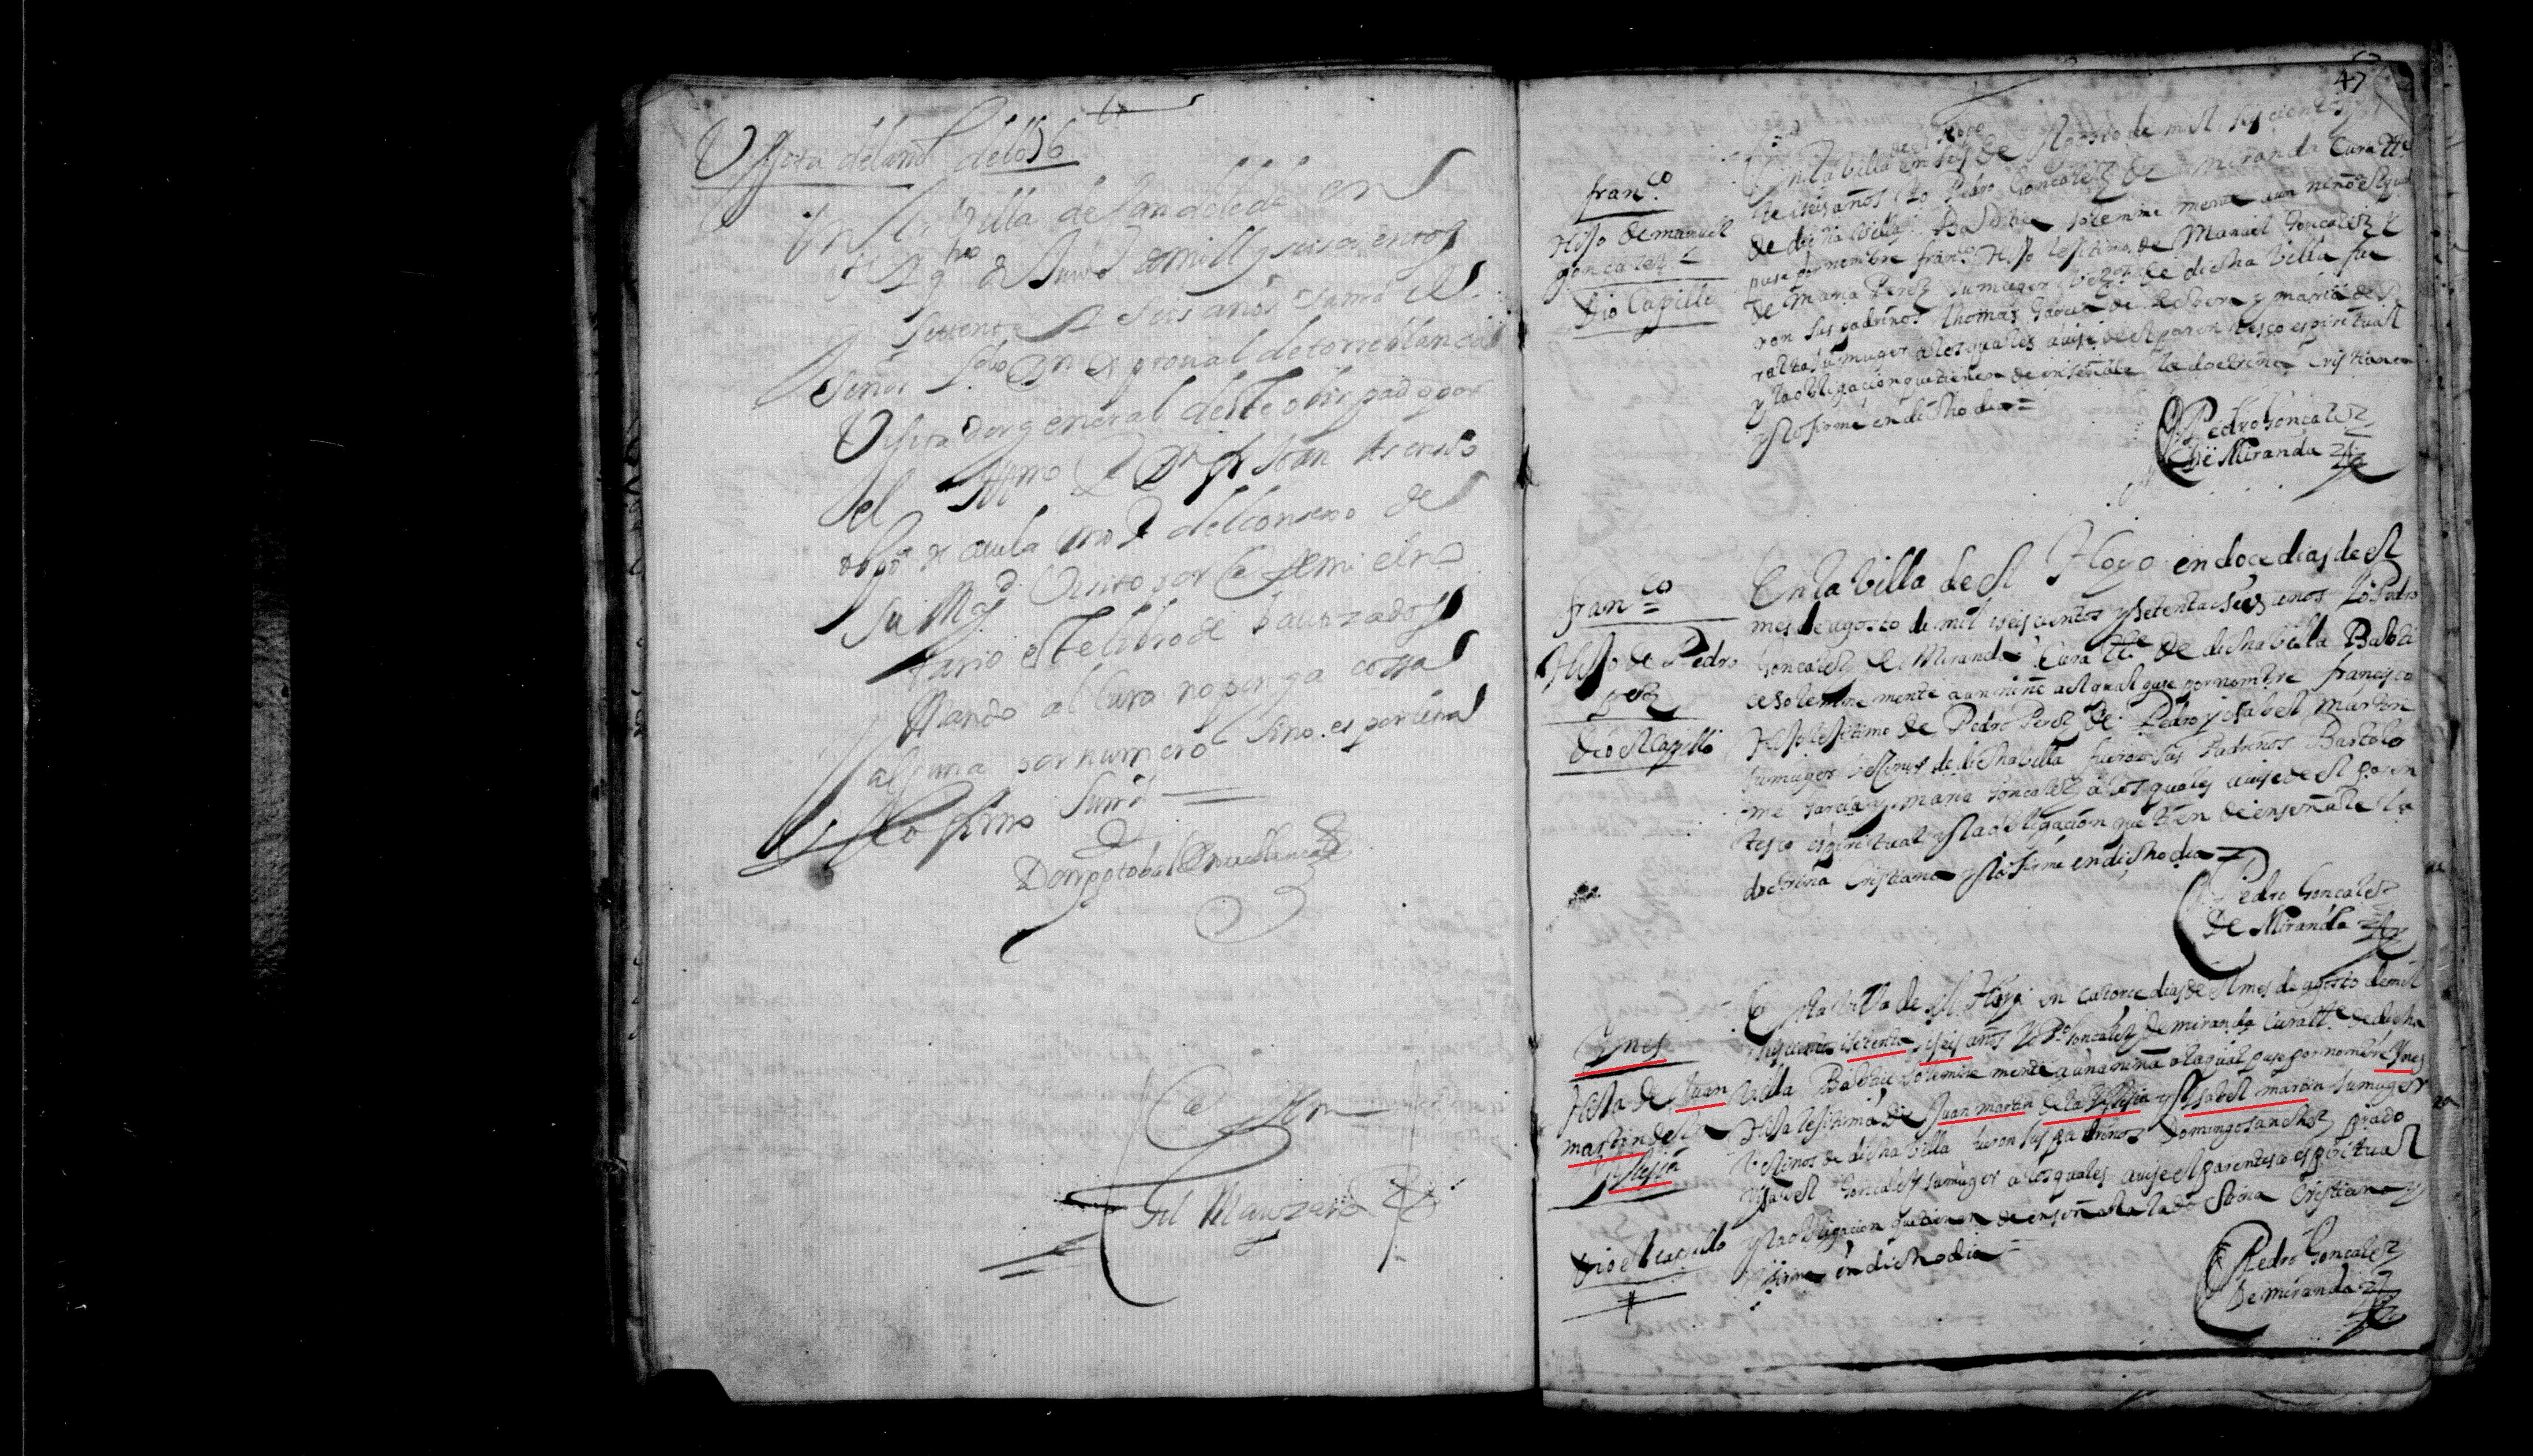 Vissita del año de 1676
En la Villa de Candeleda en
de Junio de mill y seiscientos
y settenta y seis años su md el
Señor
Visitador general deste obispado por
el Illmo
obpo de auila del consexo de
su Mgd Visito por Ante mi el no
tario este libro de bautizados
Mando al Cura no ponga cossa
alguna por numero sino es por letra
y lo firmo su md
Ante mi
Gil Manzano
47
franco
Hijo de manuel
gonçalez
Dio Capillo
de el Hoyo
En la Villa en seis de Agosto de mil seiscientos
y setenta i seis años Yo Pedro Gonçalez de Miranda Cura tte
de dicha Villa Baptice solemne mente a un niño al qual
puse por nombre franco Hijo lejitimo de Manuel Gonçalez y
de Maria Perez su muger vezos de dicha Villa fue
ron sus padrinos Thomas Garcia de y maria de
su muger a los quales auise de el parentesco espiritual
y la obligacion que tienen de enseñale la doctrina Cristiana
y lo firme en dicho dia =
Pedro Gonçalez
De Miranda
franco
Hijo de Pedro
Perez
Dio el Capillo
En la Villa de el Hoyo en doce dias de el
mes de agosto de mil i seis cientos y setenta i seis anos Yo Pedro
Gonçalez de Miranda Cura tte de dicha Villa Bapti
ce solemne mente a un niño a el qual puse por nombre francisco
Hijo lejitimo de Pedro Perez de Pedro y Ysabel Martin
su muger vecinos de dicha Villa fueron sus Padrinos Bartolo
me Garcia y maria Gonçalez a los quales auise de el paren
tesco espiritual y la obligacion que tien de enseñale la
doctrina Cristiana y lo firme en dicho dia =
Pedro Gonçalez
De Miranda
Ynes
Hija de Juan
martin de la
Yglesia
Dio el capillo
En la Villa de el Hoyo en catorce dias de el mes de agosto de mil
seiscientos i setenta i seis años Yo Po Gonçalez de miranda Cura tte de dicha
Villa Baptice solemne mente a una niña a la qual puse por nombre Ynes
Hija lejitima de Juan martin de la Yglesia y Ysabel martin su muger
Vecinos de dicha Villa fueron sus padrinos Domingo sanchez prado
Ysabel Gonçalez su muger a los quales auise el parentesco espiritual
y la obligacion que tienen de enseñalla la doctrina Cristiana y
firme en dicho dia =
Pedro Gonçalez
De miranda